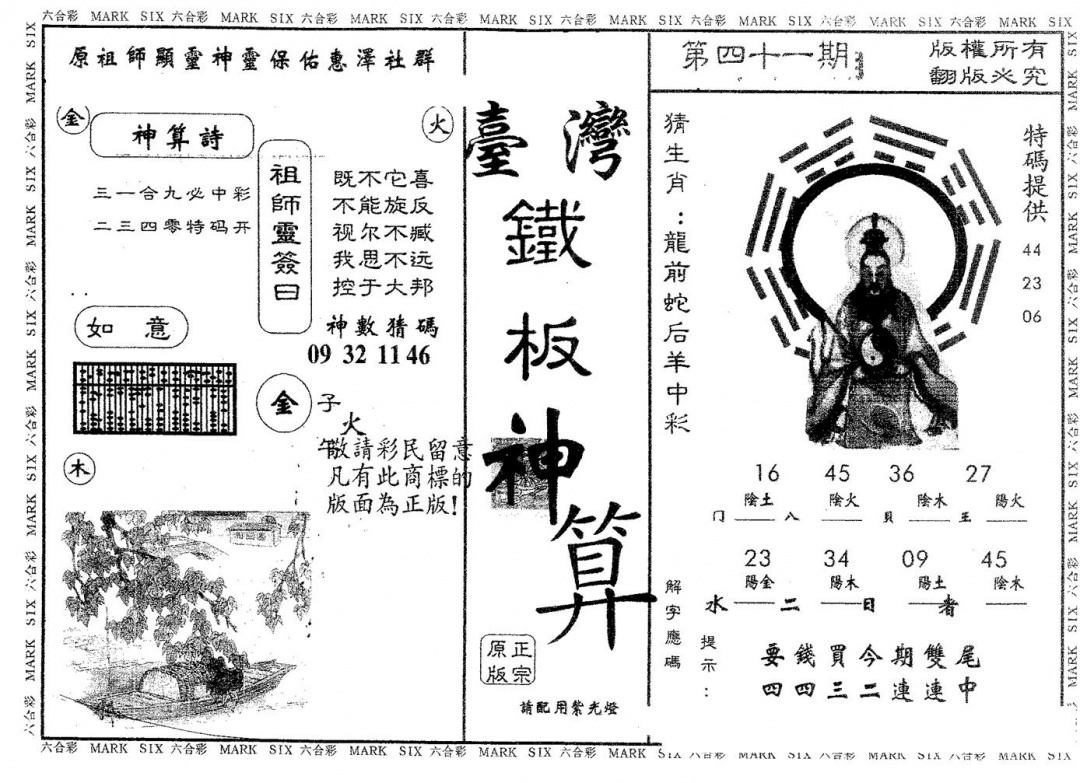 六合彩 MARK SIX 六合彩 MARK SIX 六合彩 MARK SIX 六合彩 MARK SIX 六合彩 MARK SIX 六合彩 MARK SIX 六合彩 MARK SIX 六合彩 MARK SIX
原祖師顯靈神靈保佑惠澤社群
金
神算詩
火
三一合九必中彩
二三四零特码开
祖師靈簽曰
既不它喜
不能旋反
视尔不臧
我思不远
控于大邦
神數猜碼
09 32 11 46
如意
金
子
火
午
敬請彩民留意
凡有此商標的
版面為正版!
木
臺灣
鐵板神算
正宗
原版
請配用紫光燈
第四十一期
版權所有
翻版必究
猜生肖:龍前蛇后羊中彩
特碼提供
44
23
06
16 45 36 27
陰土 陰火 陰木 陽火
门 八 貝 王
23 34 09 45
陽金 陽木 陽土 陰木
水 二 日 者
解字應碼
提示:
要錢買今期雙尾
四四三二連連中
六合彩 MARK SIX 六合彩 MARK SIX 六合彩 MARK SIX 六合彩 MARK SIX 六合彩 MARK SIX 六合彩 MARK SIX 六合彩 MARK SIX 六合彩 MARK SIX